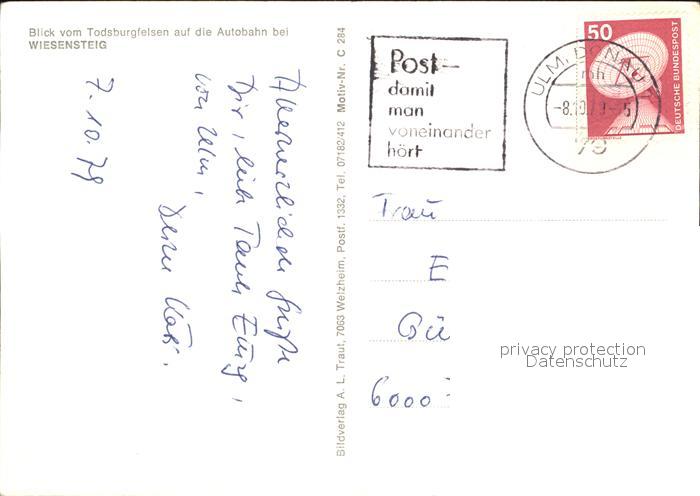 Blick vom Todsburgfelsen auf die Autobahn bei
WIESENSTEIG
7. 10. 79
Allerherzlichste Grüße
Dir, liebe Tante Emmy,
von Ulm,
Deine
Bildverlag A. L. Traut, 7063 Welzheim, Postf. 1332, Tel. 07182/412 Motiv-Nr. C 284
Post-
damit
man
voneinander
hört
ULM, DONAU
mh
-8.10.79-15
79
50
DEUTSCHE BUNDESPOST
Frau
E
6000
privacy protection
Datenschutz